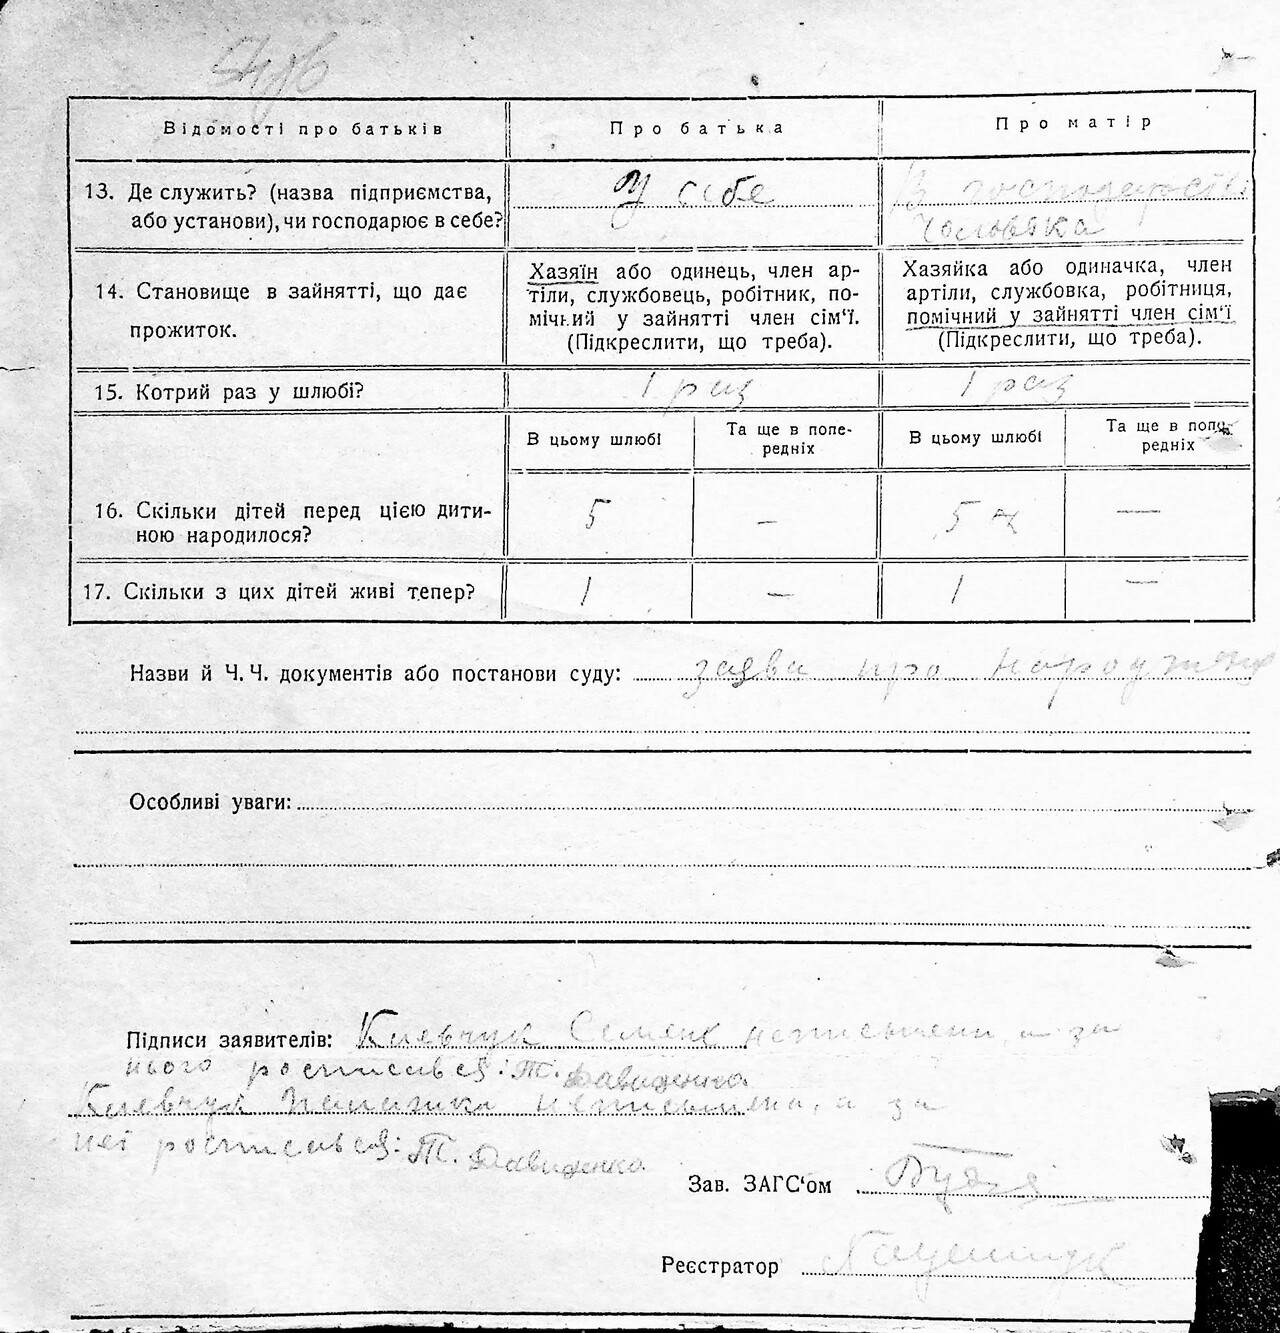 Відомості про батьків
Про батька
Про матір
13. Де служить? (назва підприємства,
або установи), чи господарює в себе?
У себе
В господарстві
чоловіка
14. Становище в зайнятті, що дає
прожиток.
Хазяїн або одинець, член ар-
тіли, службовець, робітник, по-
мічний у зайнятті член сім'ї.
(Підкреслити, що треба).
Хазяйка або одиначка, член
артіли, службовка, робітниця,
помічний у зайнятті член сім'ї
(Підкреслити, що треба).
15. Котрий раз у шлюбі?
1 раз
1 раз
В цьому шлюбі
Та ще в попе-
редніх
В цьому шлюбі
Та ще в попе-
редніх
16. Скільки дітей перед цією дити-
ною народилося?
5
—
5
—
17. Скільки з цих дітей живі тепер?
1
—
1
—
Назви й Ч. Ч. документів або постанови суду: заява про народження
Особливі уваги:
Підписи заявителів: Киевчук Семен неписьмени, а за
нього росписався: Т. Давиденко
Киевчук неписьмена, а за
неї росписався: Т. Давиденко
Зав. ЗАГС'ом
Реєстратор